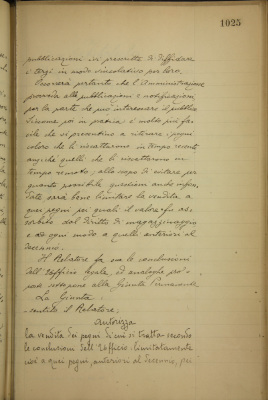 1025
pubblicazioni si presenta di diffidare
i terzi in modo vincolativo per loro.
Occorrerà pertanto che l'Amministrazione
provveda alle pubblicazioni e notificazioni
per la parte che può interessare il pubblico
Siccome poi in pratica è molto più fa-
cile che si presentino a ritirare i pegni
coloro che li riscattarono in tempo recente
anziché quelli che li riscattarono in
tempo remoto; allo scopo di evitare per
quanto possibile questioni anche infon-
date sarà bene limitare la vendita a
quei pegni pei quali il valore fu as-
sorbito dal diritto di magazzinaggio
e ad ogni modo a quelli anteriori al
decennio.
Il Relatore fa sue le conclusioni
dell'Ufficio legale, ed analoghe pro-
poste sottopone alla Giunta Municipale
La Giunta
sentito il Relatore;
autorizza
la vendita dei pegni di cui si tratta secondo
le conclusioni dell'Ufficio limitatamente
cioè a quei pegni, anteriori al decennio, pei